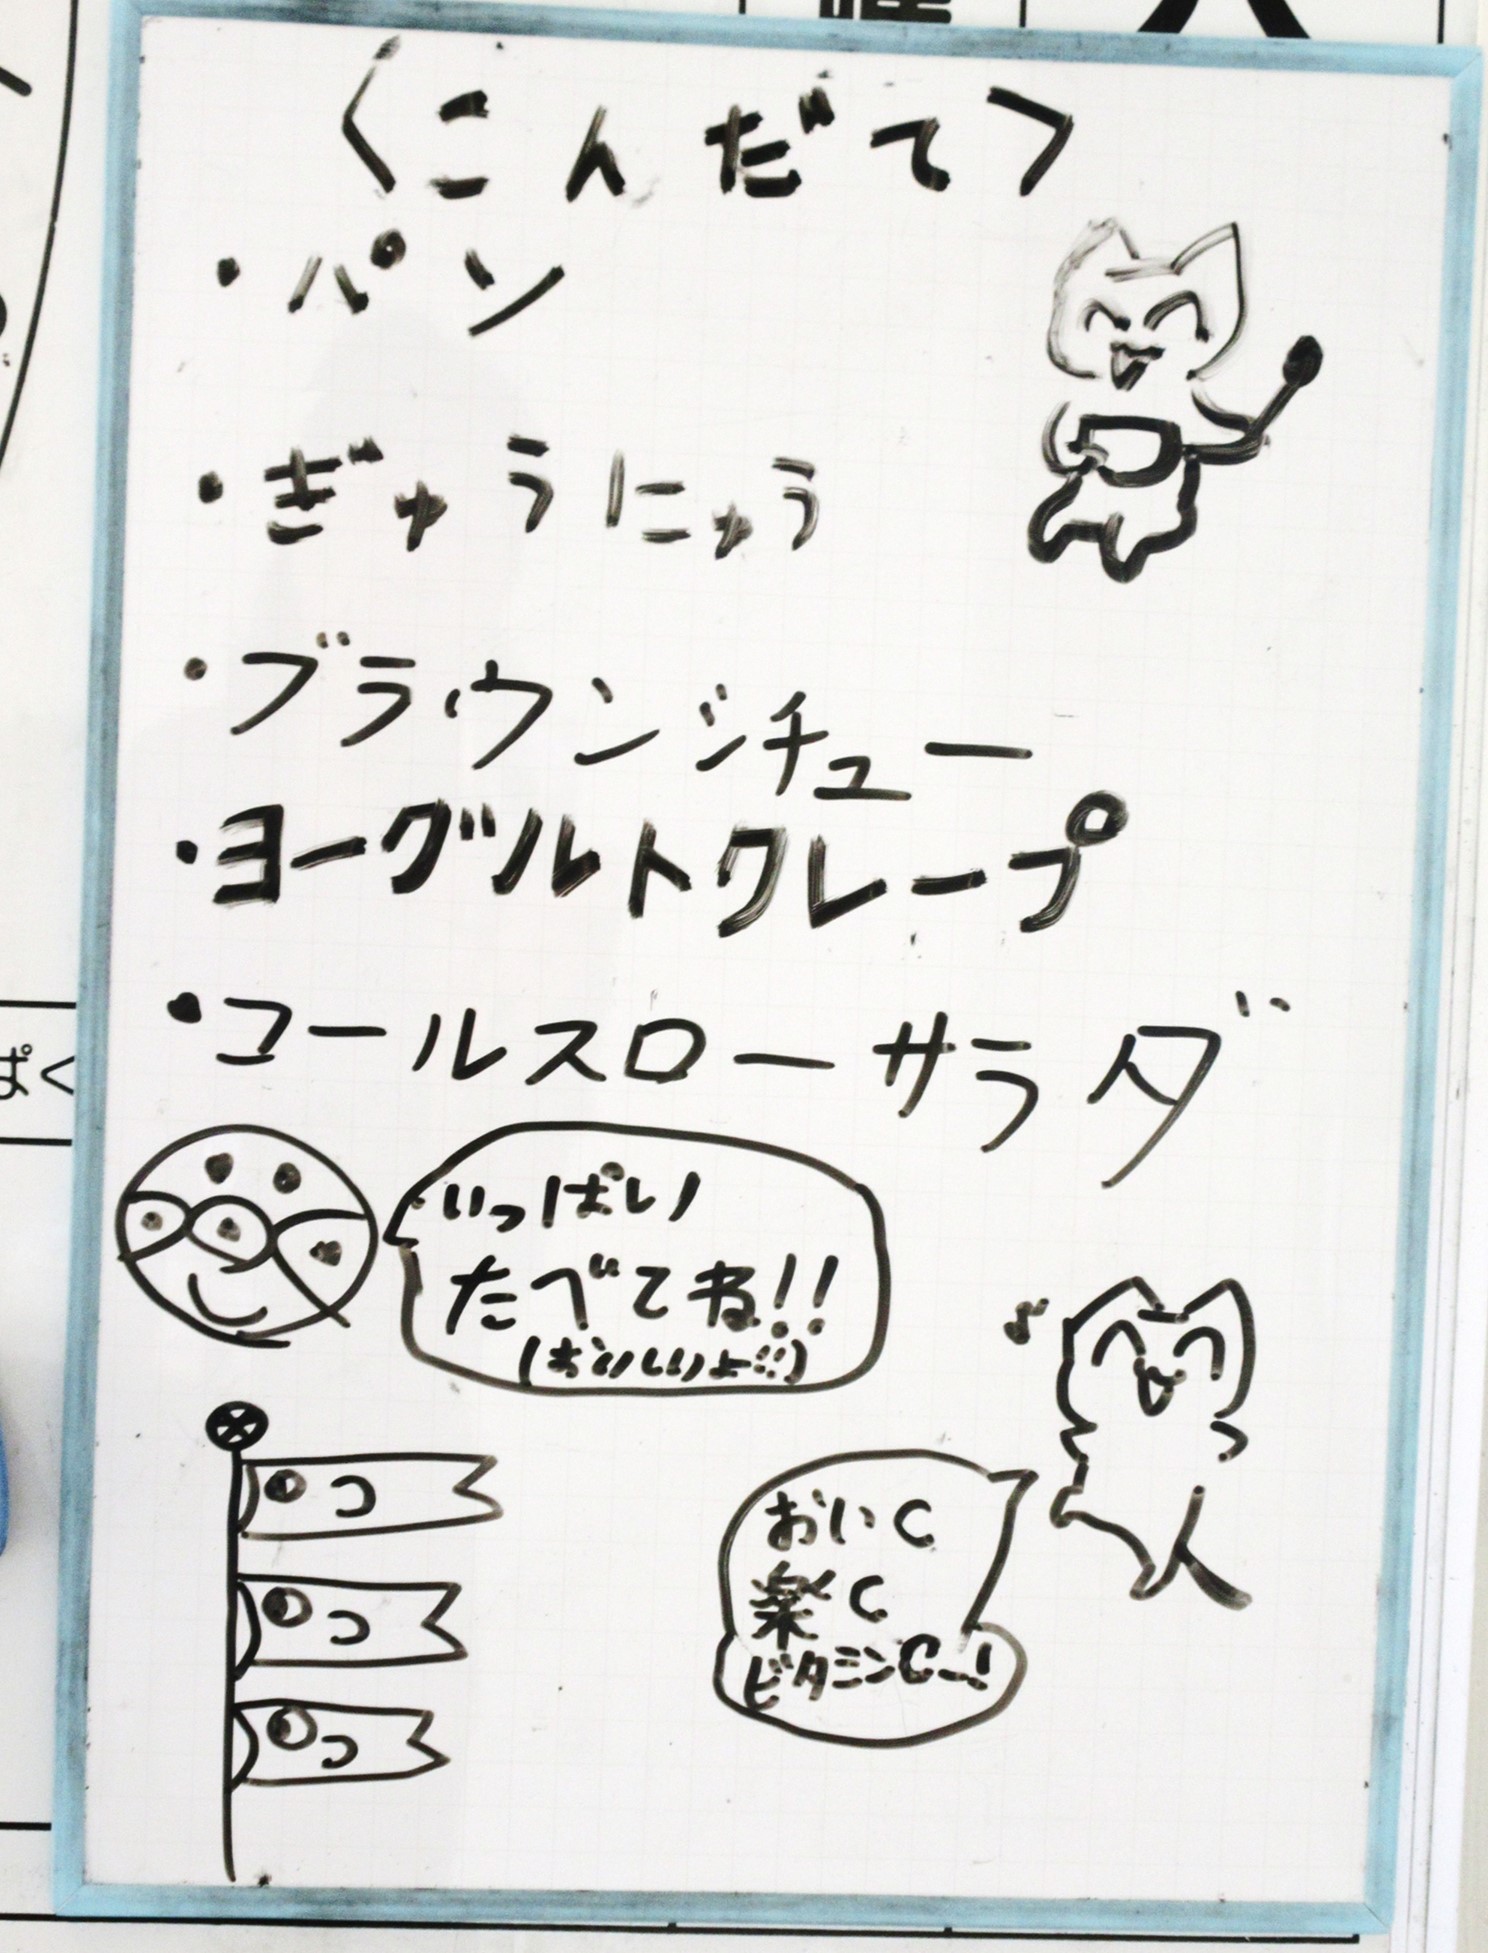 <こんだて>
・パン
・ぎゅうにゅう
・ブラウンシチュー
・ヨーグルトクレープ
・コールスローサラダ
いっぱい
たべてね!!
(おいしいよ!!)
おいC
楽C
ビタミンCー!
ぱく